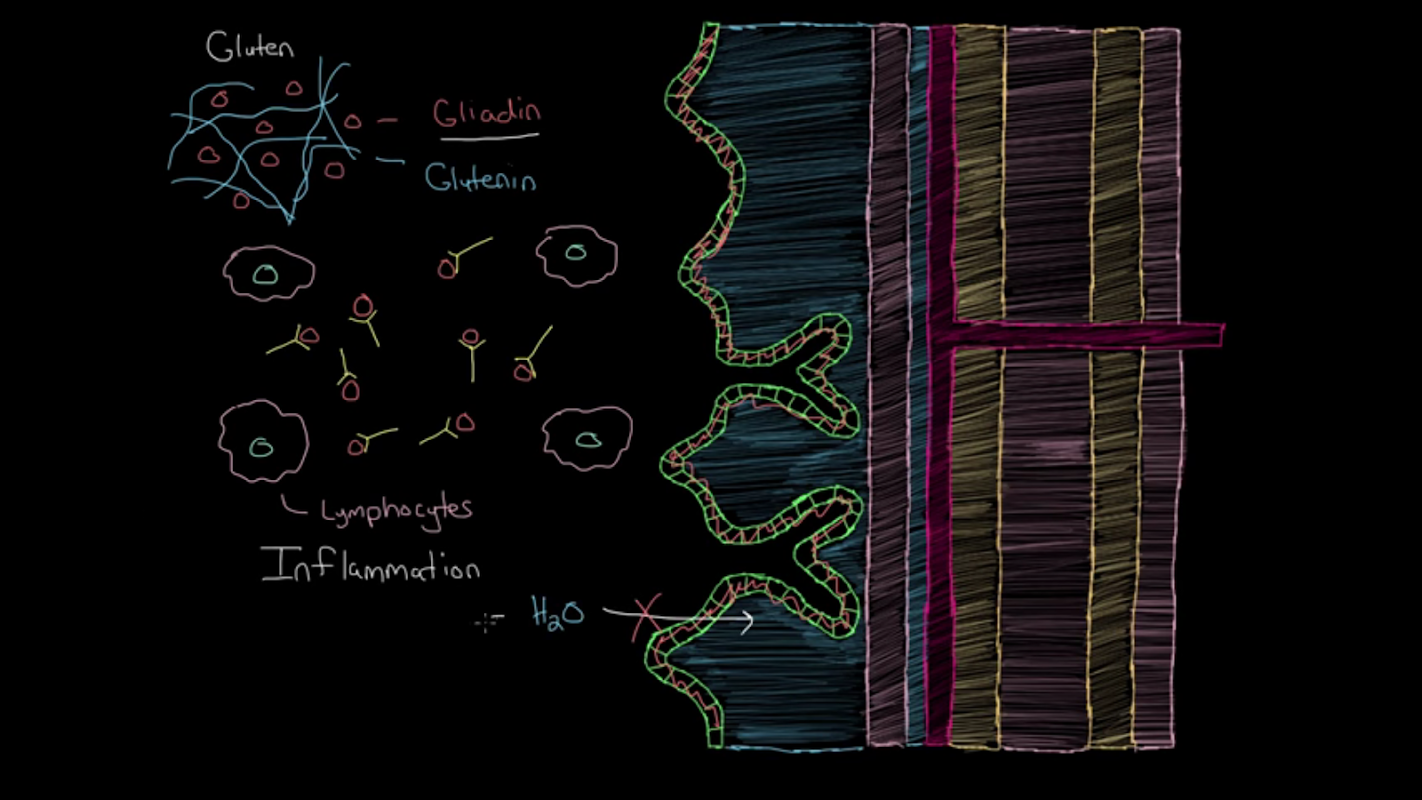 Gluten
Gliadin
Glutenin
Lymphocytes
Inflammation
H₂O